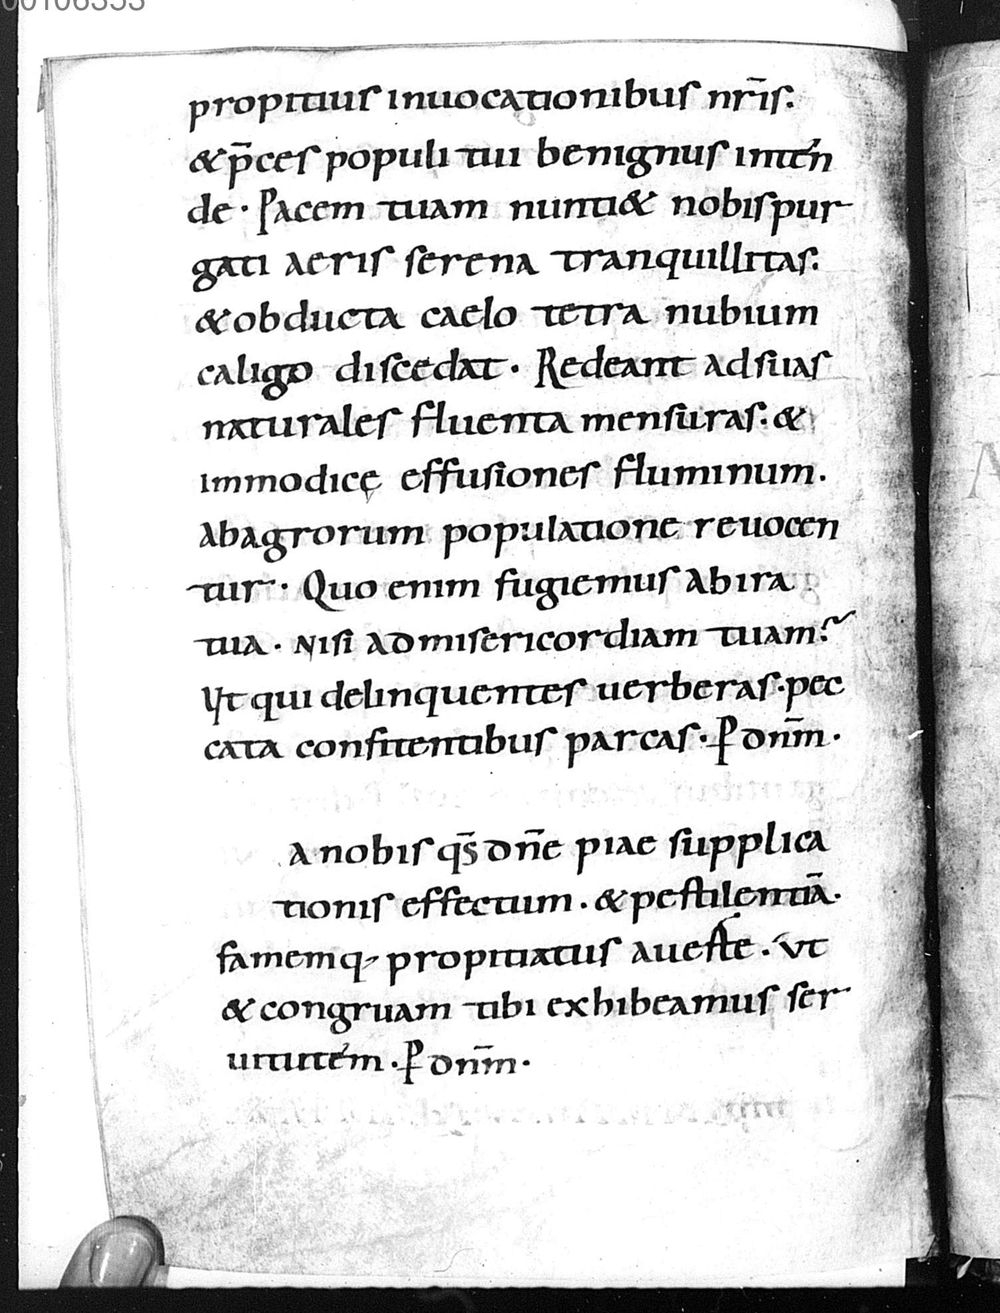 00106353
propitius inuocationibus nr̄is.
& p̄ces populi tui benignus inten
de · Pacem tuam nunti& nobis pur
gati aeris serena tranquillitas:
& obducta caelo tetra nubium
caligo discedat · Redeant ad suas
naturales fluenta mensuras. &
immodicę effusiones fluminum.
Ab agrorum populatione reuocen
tur · Quo enim fugiemus ab ira
tua · nisi ad misericordiam tuam?
Ut qui delinquentes uerberas · pec
cata confitentibus parcas · P dn̄m ·
A nobis qs̄ dn̄e piae supplica
tionis effectum · & pestilentiā ·
famemq, propitiatus auerte · Ut
& congruam tibi exhibeamus ser
uitutem · P dn̄m ·